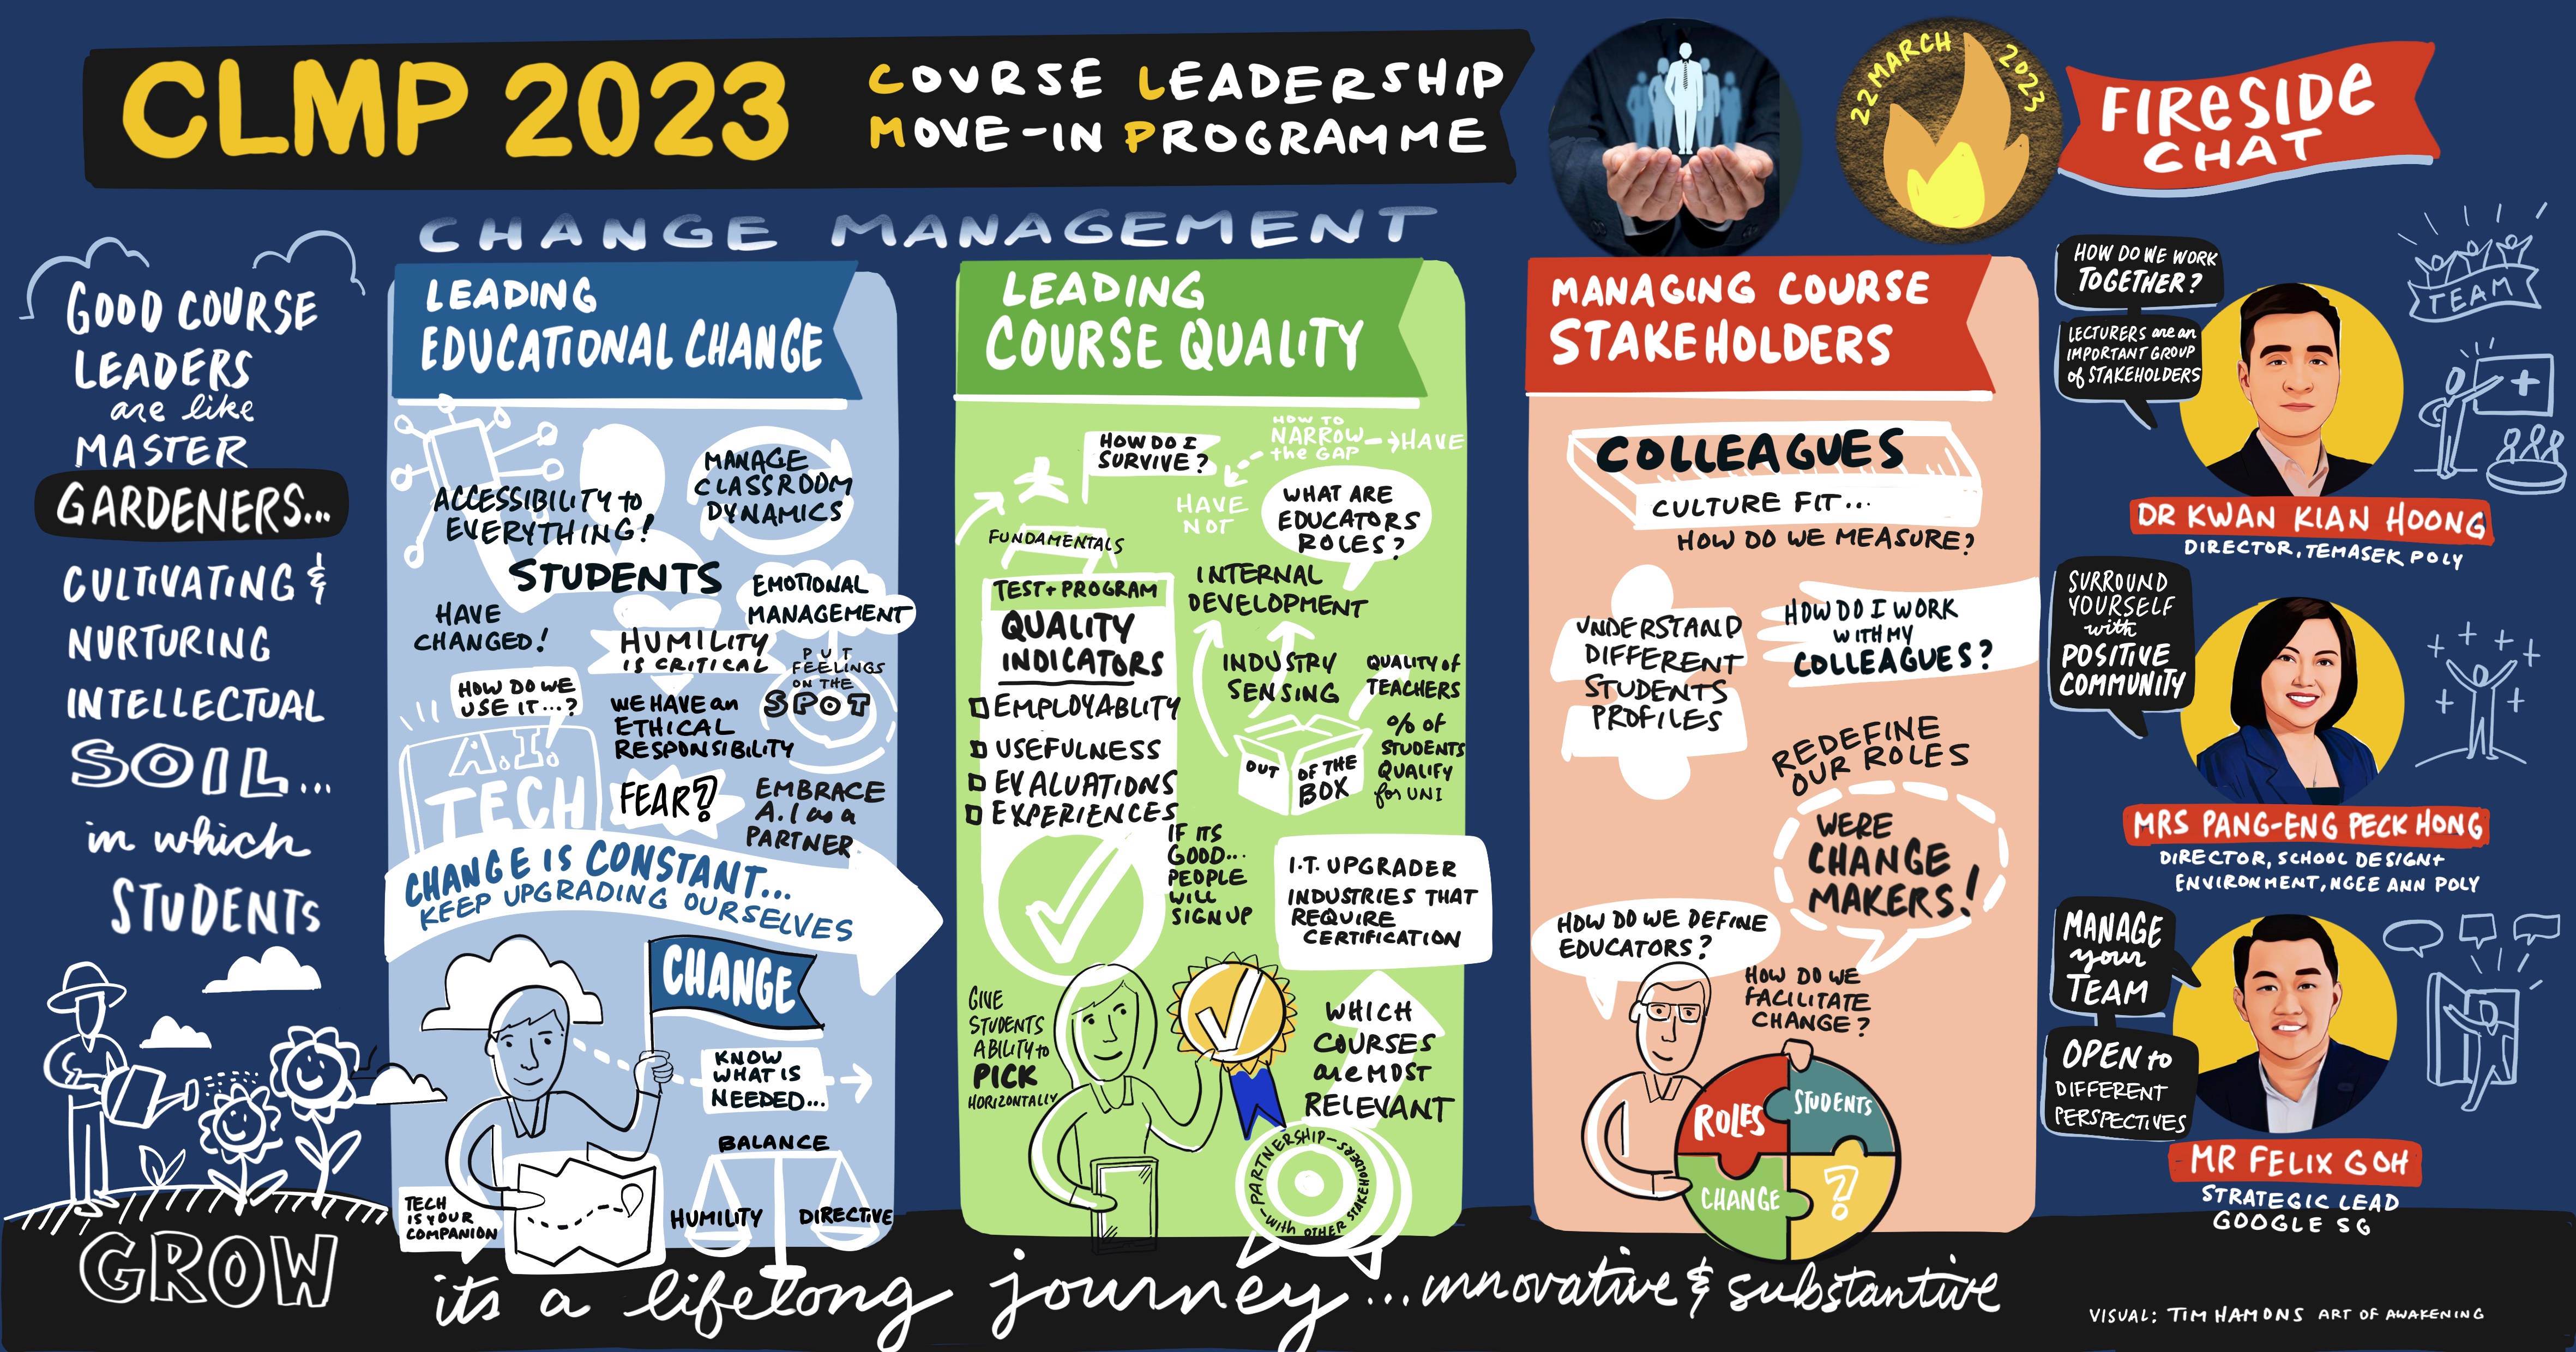 CLMP 2023
COURSE LEADERSHIP
MOVE-IN PROGRAMME
22 MARCH 2023
FIRESIDE
CHAT
CHANGE MANAGEMENT
GOOD COURSE
LEADERS
are like
MASTER
GARDENERS...
CULTIVATING &
NURTURING
INTELLECTUAL
SOIL...
in which
STUDENTS
GROW
LEADING
EDUCATIONAL CHANGE
ACCESSIBILITY to
EVERYTHING!
MANAGE
CLASSROOM
DYNAMICS
STUDENTS
HAVE
CHANGED!
EMOTIONAL
MANAGEMENT
HUMILITY
IS CRITICAL
PUT
FEELINGS
ON THE
SPOT
HOW DO WE
USE IT...?
WE HAVE an
ETHICAL
RESPONSIBILITY
A.I.
TECH
FEAR?
EMBRACE
A.I as a
PARTNER
CHANGE IS CONSTANT...
KEEP UPGRADING OURSELVES
CHANGE
KNOW
WHAT IS
NEEDED...
BALANCE
HUMILITY
DIRECTIVE
TECH
IS YOUR
COMPANION
LEADING
COURSE QUALITY
HOW DO I
SURVIVE?
HOW TO
NARROW
the GAP
HAVE
HAVE
NOT
WHAT ARE
EDUCATORS
ROLES?
FUNDAMENTALS
TEST+PROGRAM
QUALITY
INDICATORS
EMPLOYABLITY
USEFULNESS
EVALUATIONS
EXPERIENCES
INTERNAL
DEVELOPMENT
INDUSTRY
SENSING
QUALITY of
TEACHERS
% OF
STUDENTS
QUALIFY
for UNI
OUT OF THE
BOX
IF ITS
GOOD...
PEOPLE
WILL
SIGN UP
I.T. UPGRADER
INDUSTRIES THAT
REQUIRE
CERTIFICATION
GIVE
STUDENTS
ABILITY to
PICK
HORIZONTALLY
WHICH
COURSES
are MOST
RELEVANT
PARTNERSHIP-
-with OTHER STAKEHOLDERS-
MANAGING COURSE
STAKEHOLDERS
COLLEAGUES
CULTURE FIT...
HOW DO WE MEASURE?
UNDERSTAND
DIFFERENT
STUDENTS
PROFILES
HOW DO I WORK
WITH MY
COLLEAGUES?
REDEFINE
OUR ROLES
WERE
CHANGE
MAKERS!
HOW DO WE DEFINE
EDUCATORS?
HOW DO WE
FACILITATE
CHANGE?
ROLES
STUDENTS
CHANGE
?
HOW DO WE WORK
TOGETHER?
LECTURERS are an
IMPORTANT GROUP
of STAKEHOLDERS
TEAM
DR KWAN KIAN HOONG
DIRECTOR, TEMASEK POLY
SURROUND
YOURSELF
with
POSITIVE
COMMUNITY
MRS PANG-ENG PECK HONG
DIRECTOR, SCHOOL DESIGN+
ENVIRONMENT, NGEE ANN POLY
MANAGE
your
TEAM
OPEN to
DIFFERENT
PERSPECTIVES
MR FELIX GOH
STRATEGIC LEAD
GOOGLE SG
its a lifelong journey...innovative & substantive
VISUAL: TIM HAMONS ART OF AWAKENING